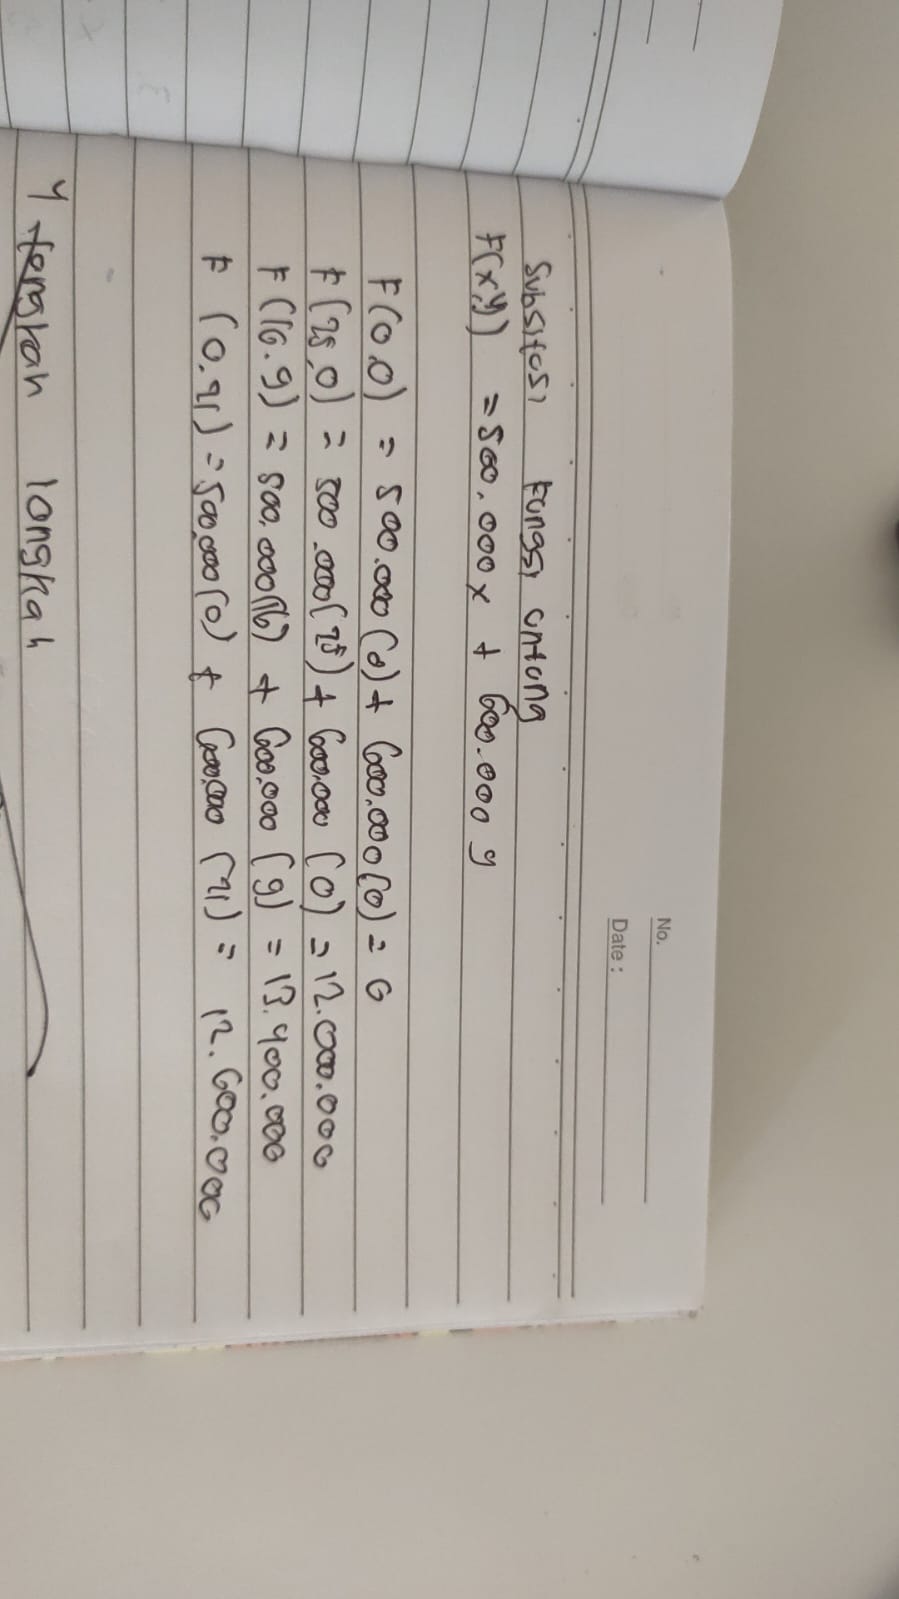 No.
Date :
Subsitusi Fungsi untung
F(x,y) = 500.000x + 600.000 y
F(0.0) = 500.000 (0) + 600.000 (0) = 0
F(25,0) = 500.000 (25) + 600.000 (0) = 12.000.000
F(16.9) = 500.000 (16) + 600.000 (9) = 13.400.000
F (0.21) = 500.000 (0) + 600.000 (21) = 12.600.000
langkah